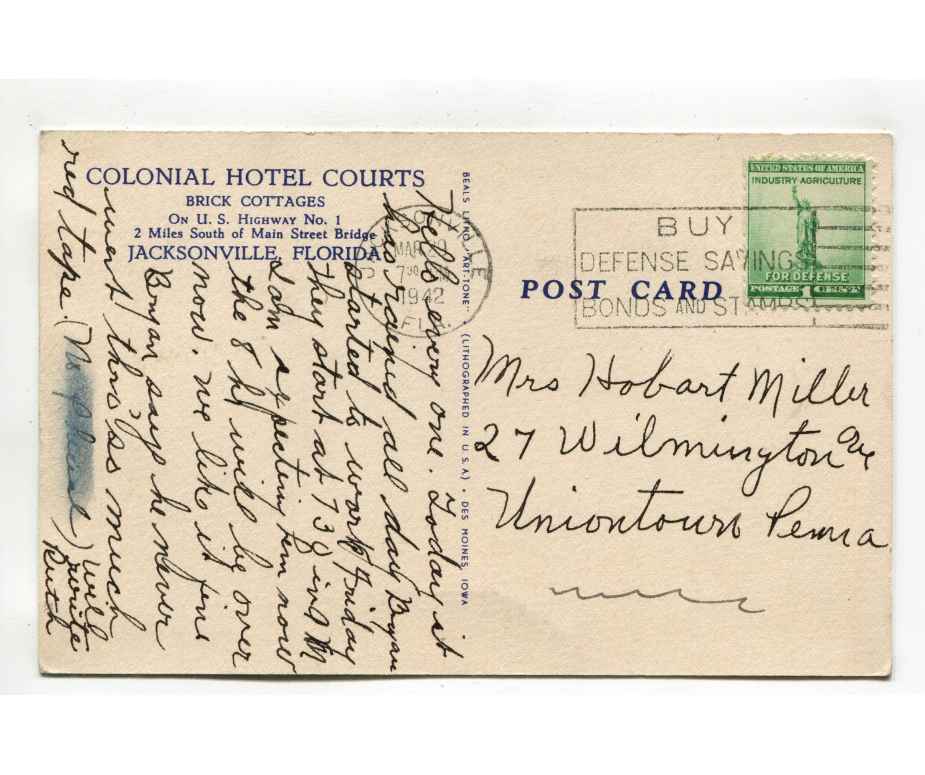 COLONIAL HOTEL COURTS
BRICK COTTAGES
ON U. S. HIGHWAY NO. 1
2 Miles South of Main Street Bridge
JACKSONVILLE, FLORIDA
Hello every one. Today it
has rained all day Bryan
started to work Friday
They start at 7 30 in M
I am expecting him now
the 8 hr will be over
now. We like it fine
Bryan says he never
went thru as much
red tape. (No )
will
write
Ruth
BEALS LITHO. "ART-TONE" (LITHOGRAPHED IN U.S.A.) - DES MOINES, IOWA
JACKSONVILLE
MAR
7 30
1942
FLA
BUY
DEFENSE SAVINGS
BONDS AND STAMPS
UNITED STATES OF AMERICA
INDUSTRY AGRICULTURE
FOR DEFENSE
POSTAGE 1 CENT
POST CARD
Mrs Hobart Miller
27 Wilmington Ave
Uniontown Penna